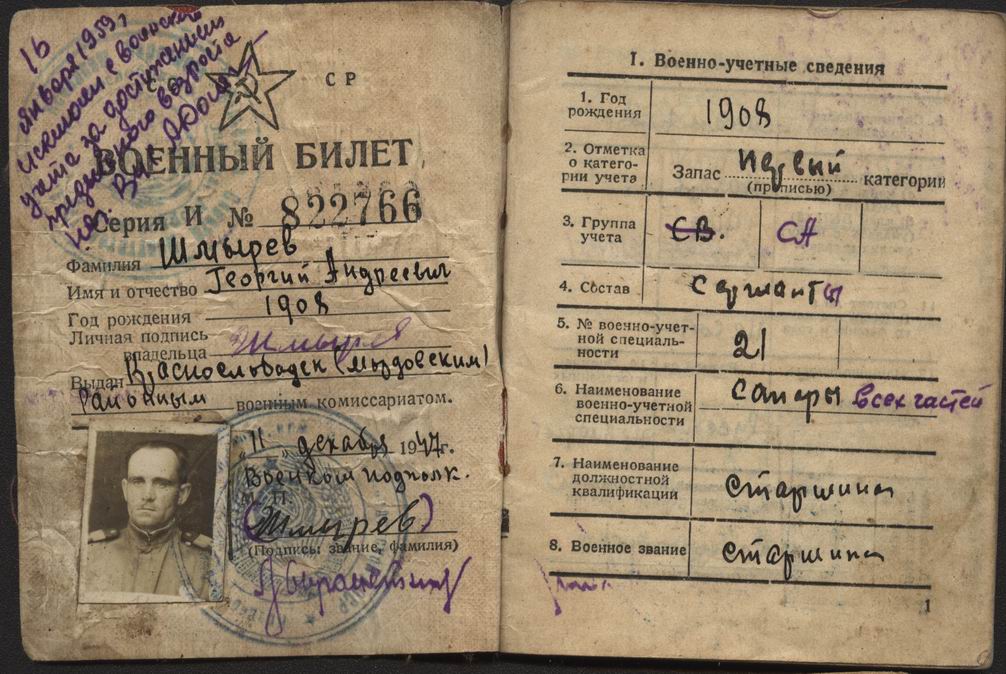 16
января 1959 г
исключен с воинского
учета за достижением
предельного возраста
СР
ВОЕННЫЙ БИЛЕТ
Серия И № 822766
Фамилия Шмырев
Имя и отчество Георгий Андреевич
Год рождения 1908
Личная подпись
владельца Шмырев
Выдан
Районным военным комиссариатом.
"11" декабря 1947 г.
Военком подполк.
М. П.
(Шмырев)
(Подпись, звание, фамилия)
I. Военно-учетные сведения
1. Год
рождения 1908
2. Отметка
о катего-
рии учета Запас первый категории
(прописью)
3. Группа
учета СВ. СА
4. Состав Сержанты
5. № военно-учет-
ной специаль-
ности 21
6. Наименование
военно-учетной
специальности саперы всех частей
7. Наименование
должностной
квалификации старшина
8. Военное звание старшина
1